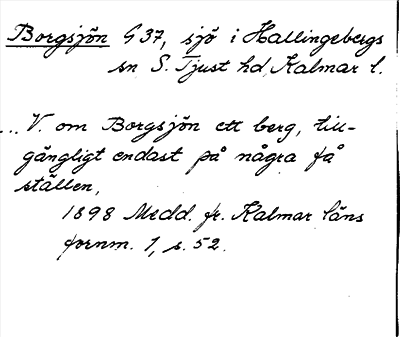 Borgsjön G 37, sjö i Hallingebergs
sn S. Tjust hd, Kalmar l.
... V. om Borgsjön ett berg, till-
gängligt endast på några få
ställen,
1898 Medd. fr. Kalmar läns
fornm. 1, s. 52.